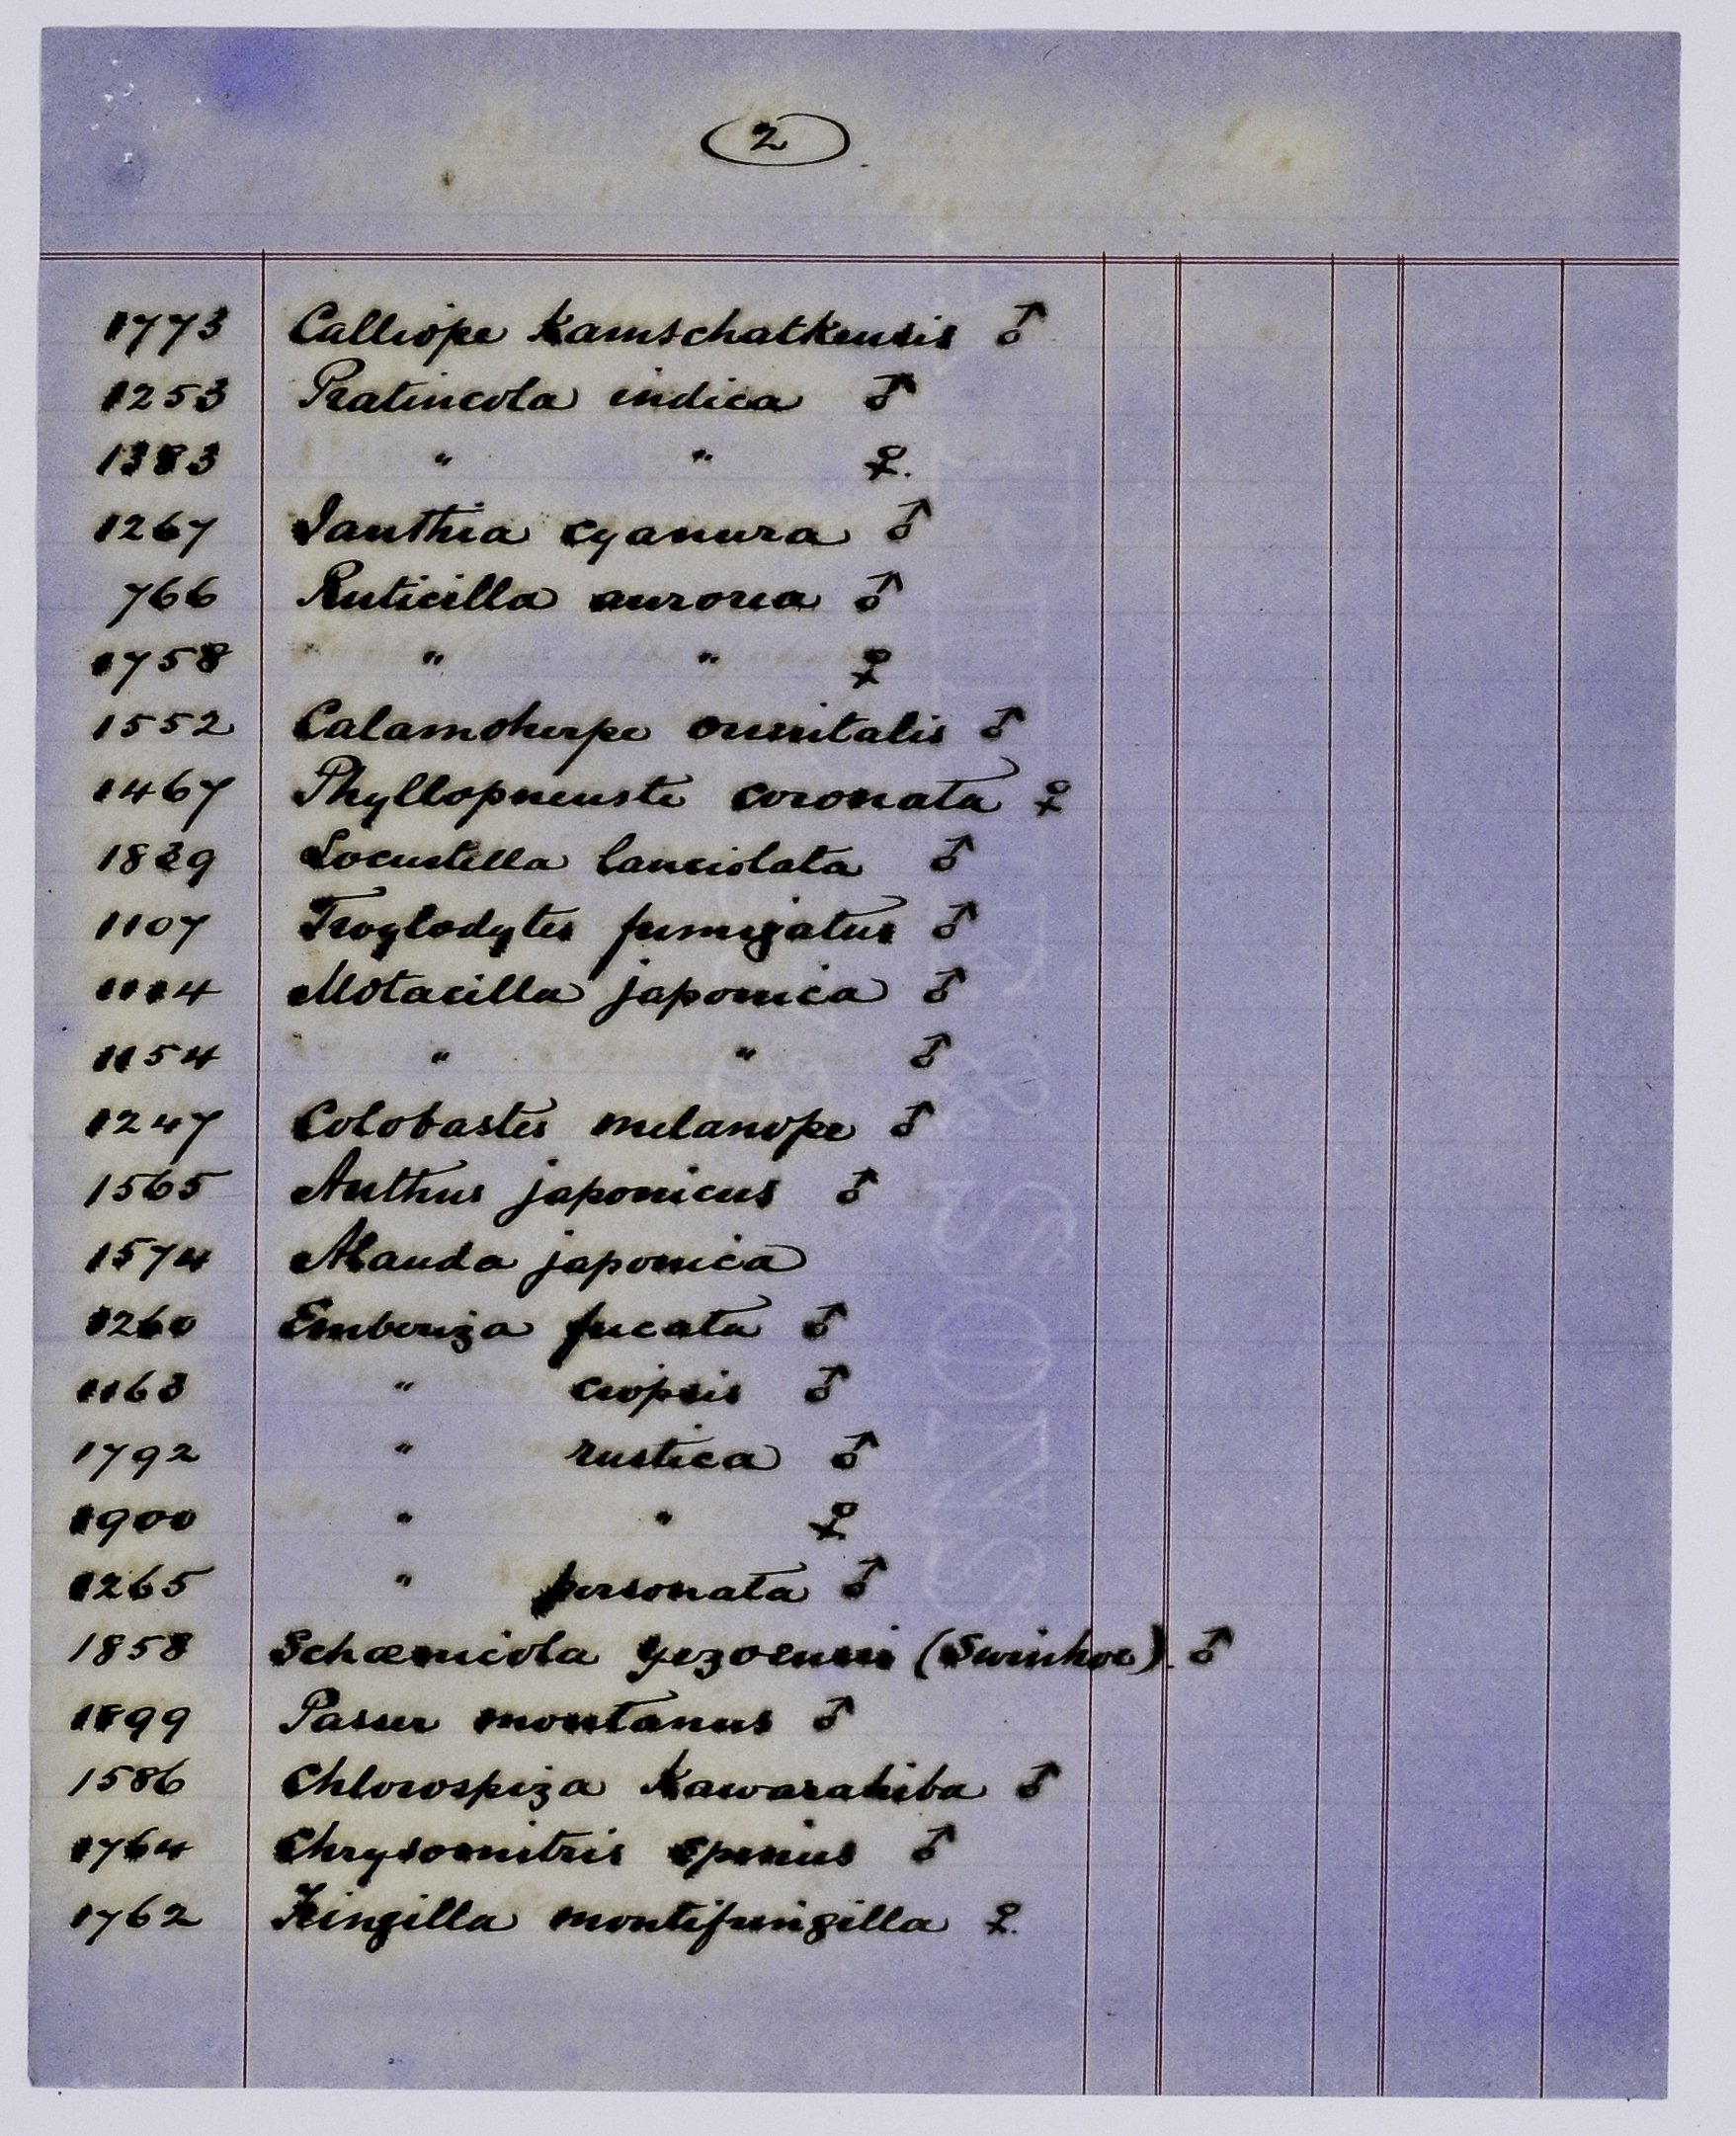 2
1773 Calliope Kamschatkensis ♂
1253 Pratincola indica ♂
1383 " " ♀.
1267 Ianthia cyanura ♂
766 Ruticilla aurorea ♂
1758 " " ♀
1552 Calamoherpe orientalis ♂
1467 Phyllopneuste coronata ♀
1829 Locustella lanciolata ♂
1107 Troglodytes fumigatus ♂
1114 Motacilla japonica ♂
1154 " " ♂
1247 Colobastes melanope ♂
1565 Anthus japonicus ♂
1574 Alauda japonica
1260 Emberiza fucata ♂
1163 " ciopsis ♂
1792 " rustica ♂
1900 " " ♀
1265 " personata ♂
1858 Schœnicola yezoensis (Swinhoe). ♂
1899 Passer montanus ♂
1586 Chlorospiza Kawarahiba ♂
1764 Chrysomitris spinus ♂
1762 Fringilla montifringilla ♀.